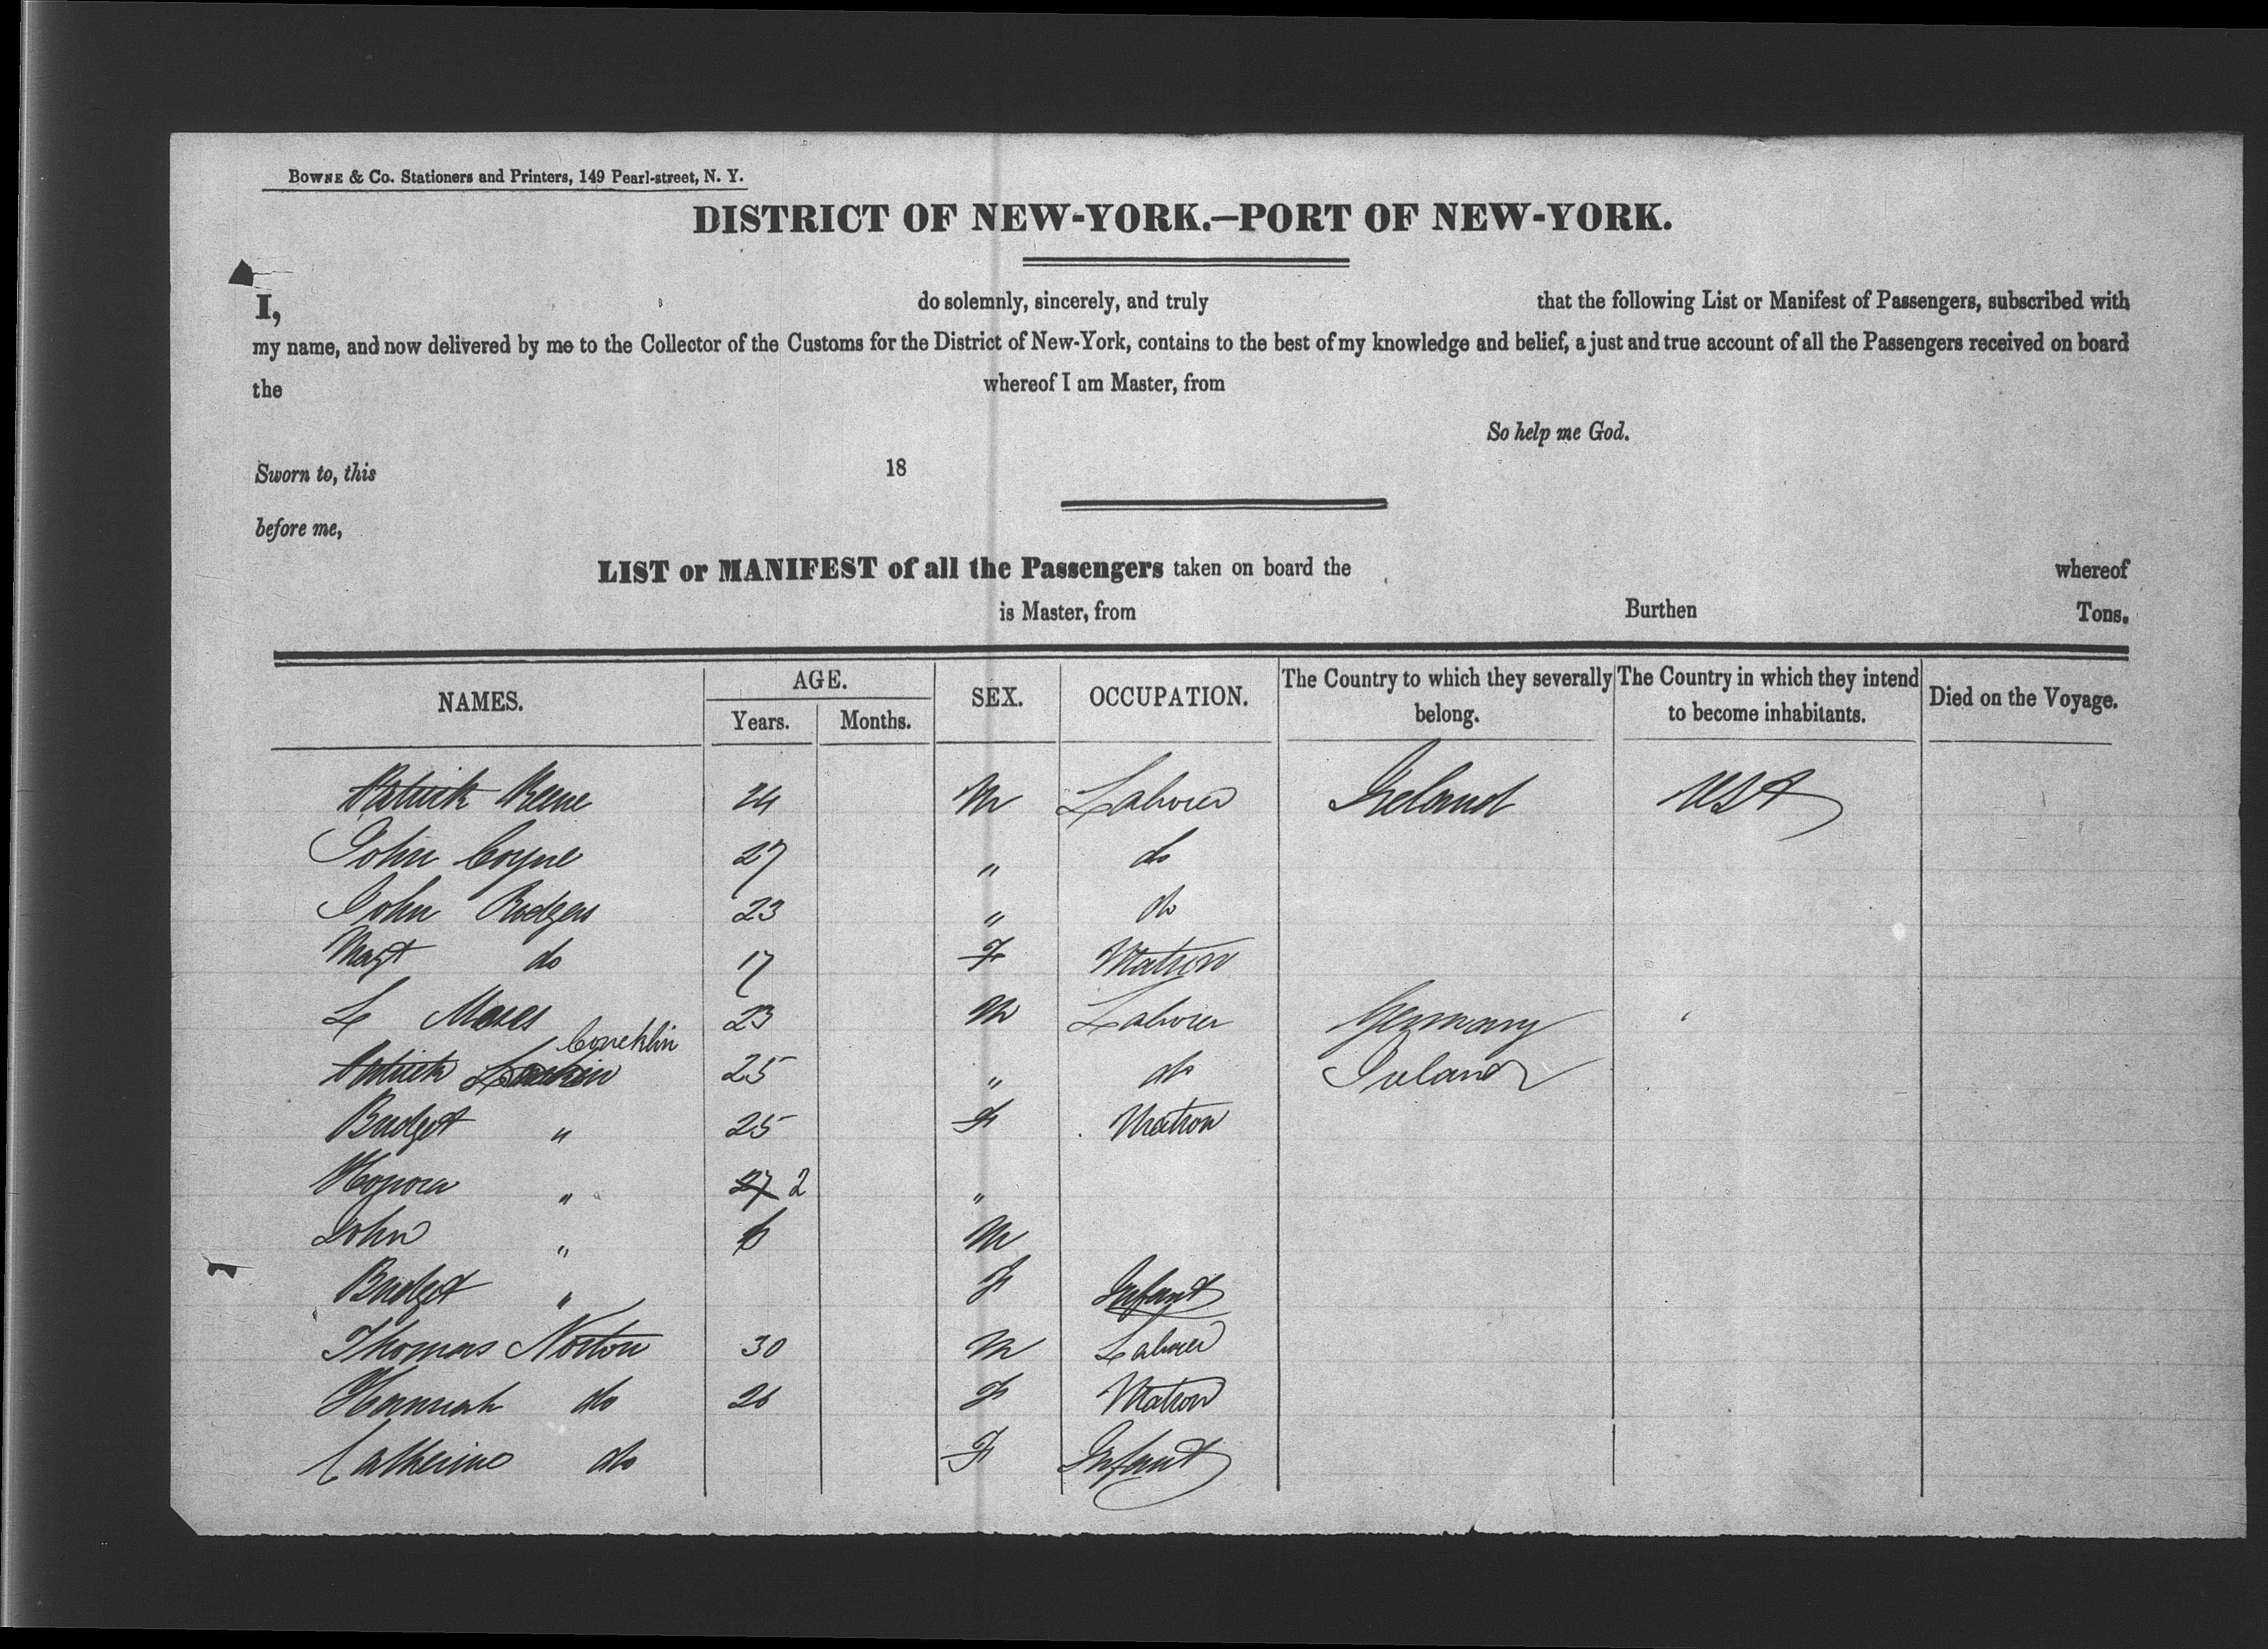 BOWNE & Co. Stationers and Printers, 149 Pearl-street, N. Y.
DISTRICT OF NEW-YORK.—PORT OF NEW-YORK.
I, do solemnly, sincerely, and truly that the following List or Manifest of Passengers, subscribed with
my name, and now delivered by me to the Collector of the Customs for the District of New-York, contains to the best of my knowledge and belief, a just and true account of all the Passengers received on board
the whereof I am Master, from
So help me God.
Sworn to, this 18
before me,
LIST or MANIFEST of all the Passengers taken on board the whereof
is Master, from Burthen Tons.
NAMES. AGE. Years. Months. SEX. OCCUPATION. The Country to which they severally belong. The Country in which they intend to become inhabitants. Died on the Voyage.
Patrick Keene 24 M Laborer Ireland USA
John Coyne 27 " do
John Rodgers 23 " do
Margt do 17 F Matron
L Moses 23 M Laborer Germany
Conchlin
Patrick 25 " do Ireland
Bridget " 25 F Matron
Honora " 27 2 "
John " 6 M
Bridget " F Infant
Thomas Norton 30 M Laborer
Hannah do 26 F Matron
Catherine do F Infant